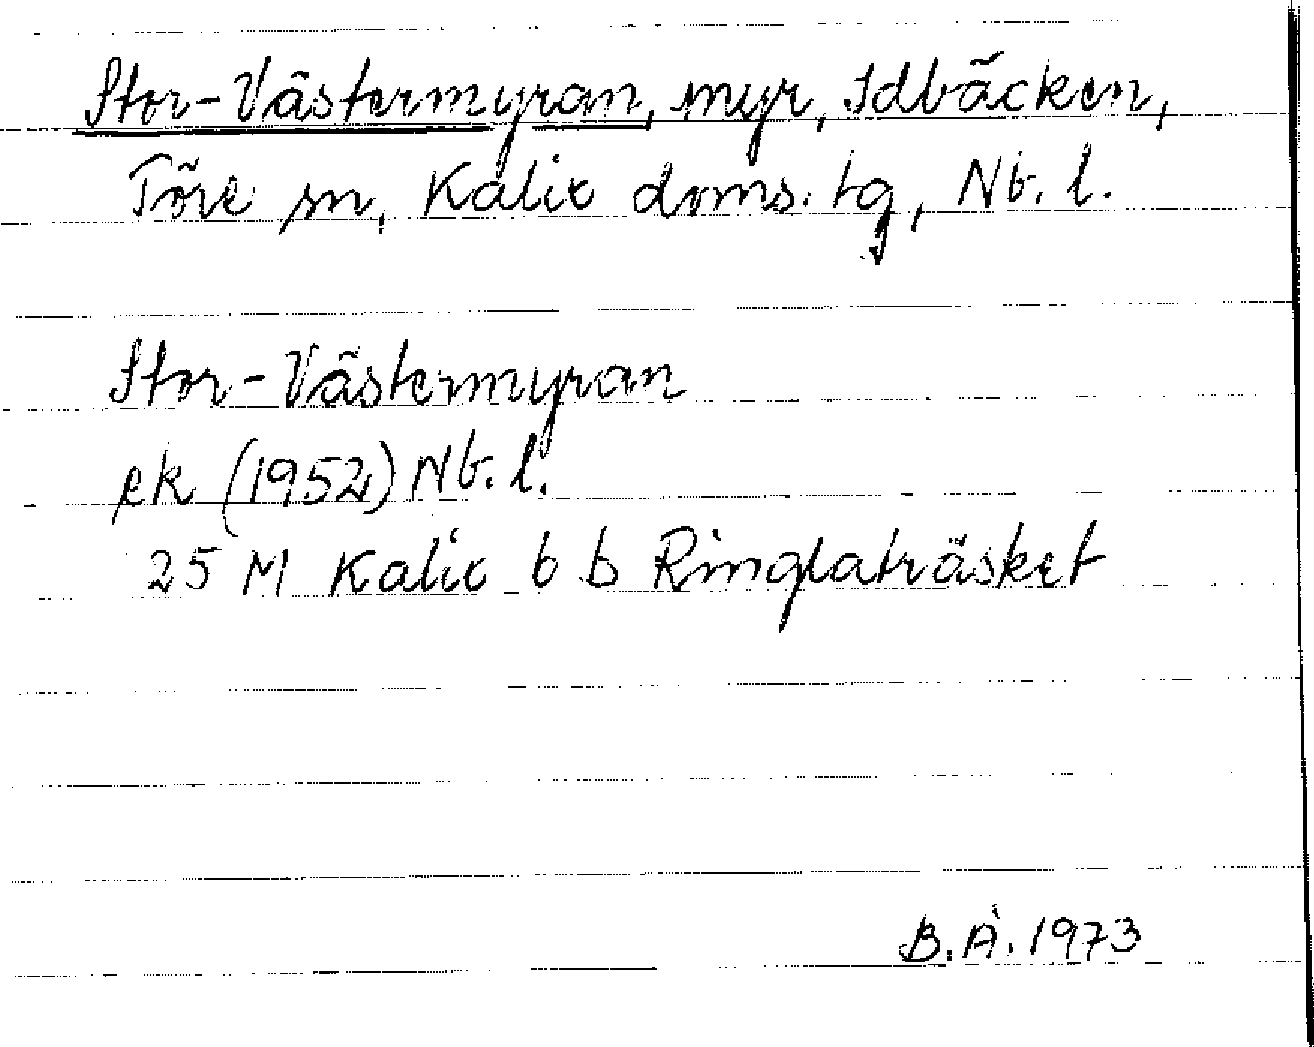 Stor-Västermyran, myr, Idbäcken,
Töre sn, Kalix doms. tg, Nb. l.
Stor-Västermyran
ek (1952) Nb. l.
25 M Kalix 6 b Ringlaträsket
B. Å. 1973